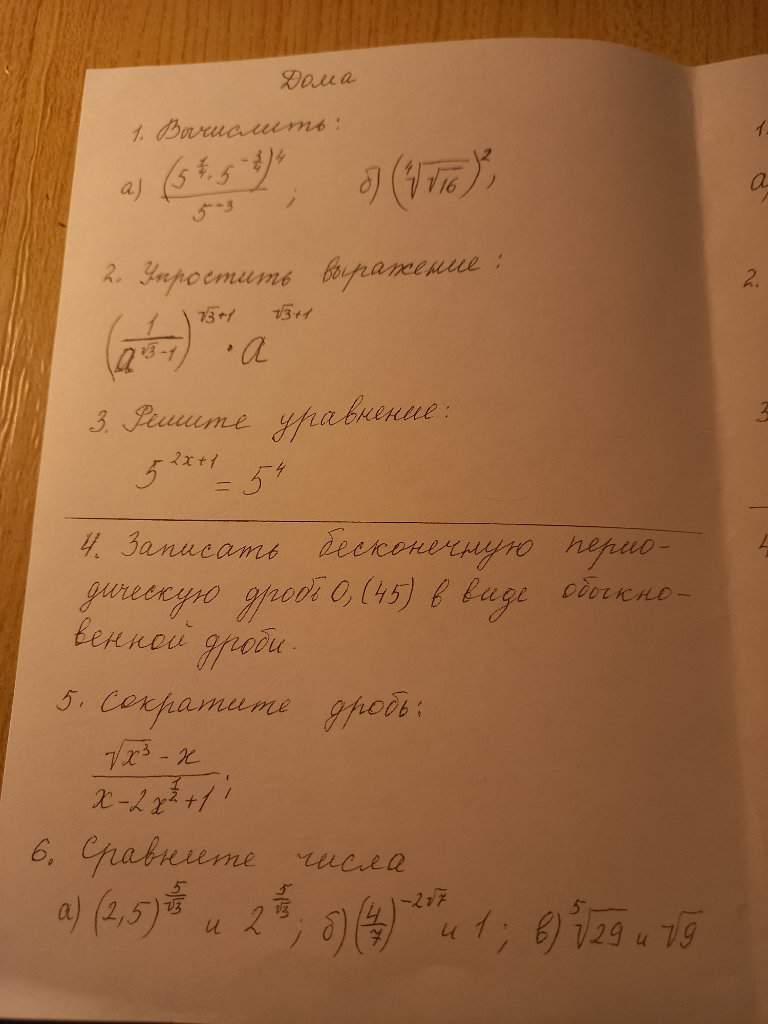 Дома
1. Вычислить:
а) (5^{1/4} · 5^{-3/4})^4 / 5^{-3} ; б) (∜√16)^2;
2. Упростить выражение:
(1 / a^{√3-1})^{√3+1} · a^{√3+1}
3. Решите уравнение:
5^{2x+1} = 5^4
4. Записать бесконечную перио-
дическую дробь 0,(45) в виде обыкно-
венной дроби.
5. Сократите дробь:
(√x^3 - x) / (x - 2x^{1/2} + 1) ;
6. Сравните числа
а) (2,5)^{5/√3} и 2^{5/√3}; б) (4/7)^{-2√7} и 1; в) ⁵√29 и √9
1.
а)
2.
3
4